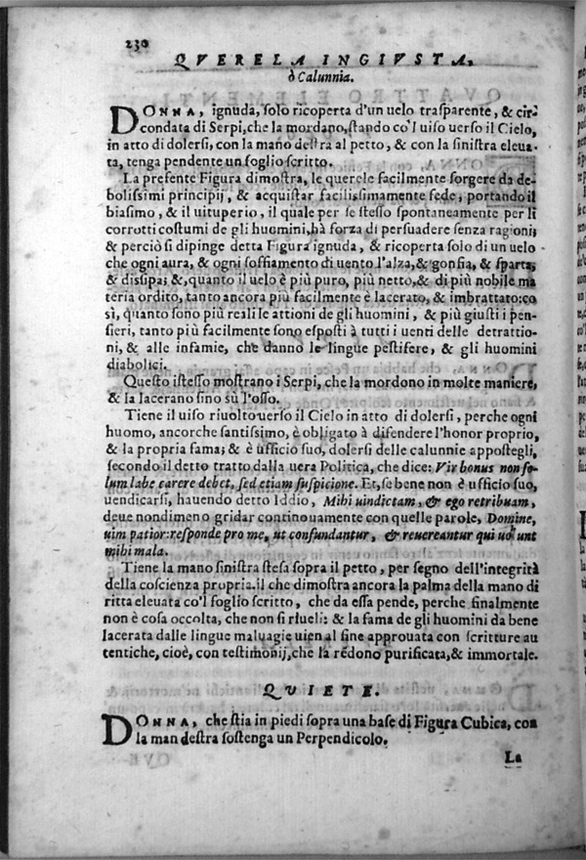 230
QVERELA INGIVSTA,
ò Calunnia.
DONNA, ignuda, solo ricoperta d'un uelo trasparente, & cir-
condata di Serpi, che la mordano, stando co'l uiso uerso il Cielo,
in atto di dolersi, con la mano destra al petto, & con la sinistra eleua-
ta, tenga pendente un foglio scritto.
La presente Figura dimostra, le querele facilmente sorgere da de-
bolissimi principij, & acquistar facilissimamente fede, portando il
biasimo, & il uituperio, il quale per se stesso spontaneamente per li
corrotti costumi de gli huomini, hà forza di persuadere senza ragioni;
& perciò si dipinge detta Figura ignuda, & ricoperta solo di un uelo
che ogni aura, & ogni soffiamento di uento l'alza, & gonfia, & sparta,
& dissipa; &, quanto il uelo è più puro, più netto, & di più nobile ma
teria ordito, tanto ancora più facilmente è lacerato, & imbrattato: co
sì, quanto sono più reali le attioni de gli huomini, & più giusti i pen-
sieri, tanto più facilmente sono esposti à tutti i uenti delle detrattio-
ni, & alle infamie, che danno le lingue pestifere, & gli huomini
diabolici.
Questo istesso mostrano i Serpi, che la mordono in molte maniere,
& la lacerano sino sù l'osso.
Tiene il uiso riuolto uerso il Cielo in atto di dolersi, perche ogni
huomo, ancorche santissimo, è obligato à difendere l'honor proprio,
& la propria fama; & è ufficio suo, dolersi delle calunnie appostegli,
secondo il detto tratto dalla uera Politica, che dice: Vir bonus non so-
lum labe carere debet, sed etiam suspicione. Et, se bene non è ufficio suo,
uendicarsi, hauendo detto Iddio, Mihi uindictam, & ego retribuam,
deue nondimeno gridar continouamente con quelle parole, Domine,
uim patior: responde pro me, ut confundantur, & reuereantur qui uolunt
mihi mala.
Tiene la mano sinistra stesa sopra il petto, per segno dell'integrità
della coscienza propria. il che dimostra ancora la palma della mano di
ritta eleuata co'l foglio scritto, che da essa pende, perche finalmente
non è cosa occolta, che non si riueli: & la fama de gli huomini da bene
lacerata dalle lingue maluagie uien al fine approuata con scritture au
tentiche, cioè, con testimonij, che la rēdono purificata, & immortale.
QVIETE.
DONNA, che stia in piedi sopra una base di Figura Cubica, con
la man destra sostenga un Perpendicolo.
La